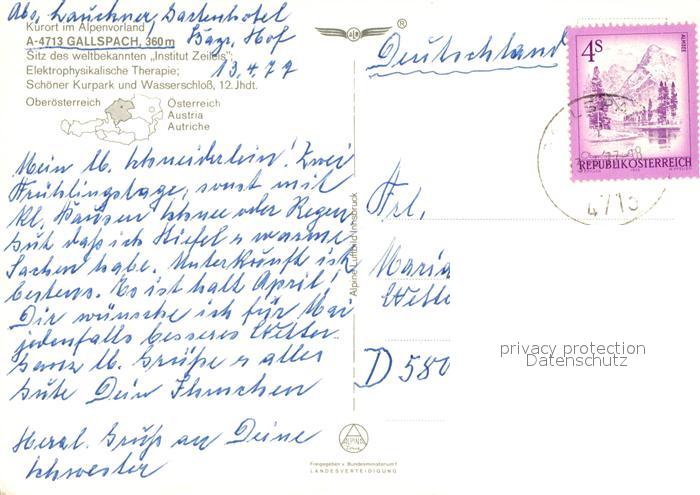 Abs. Lauckner, Gartenhotel
Kurort im Alpenvorland
A-4713 GALLSPACH, 360m Bayr. Hof
Sitz des weltbekannten „Institut Zeileis";
13.4.77
Elektrophysikalische Therapie;
Schöner Kurpark und Wasserschloß, 12.Jhdt.
Oberösterreich
Österreich
Austria
Autriche
Mein lb. Schneiderlein! Zwei
Frühlingstage, sonst mit
kl. Pausen Schnee oder Regen
Gut daß ich Stiefel u warme
Sachen habe. Unterkunft ist
bestens. Es ist halt April!
Dir wünsche ich für Mai
jedenfalls besseres Wetter.
Ganz lb. Grüße u alles
Gute Dein
Herzl. Gruß an Deine
Schwester
Alpine Luftbild Innsbruck
ALPINE
Freigegeben v. Bundesministerium f.
LANDESVERTEIDIGUNG
®
Deutschland
4S
ALMSEE
REPUBLIK ÖSTERREICH
4713
Frl.
Maria
D 580
privacy protection
Datenschutz